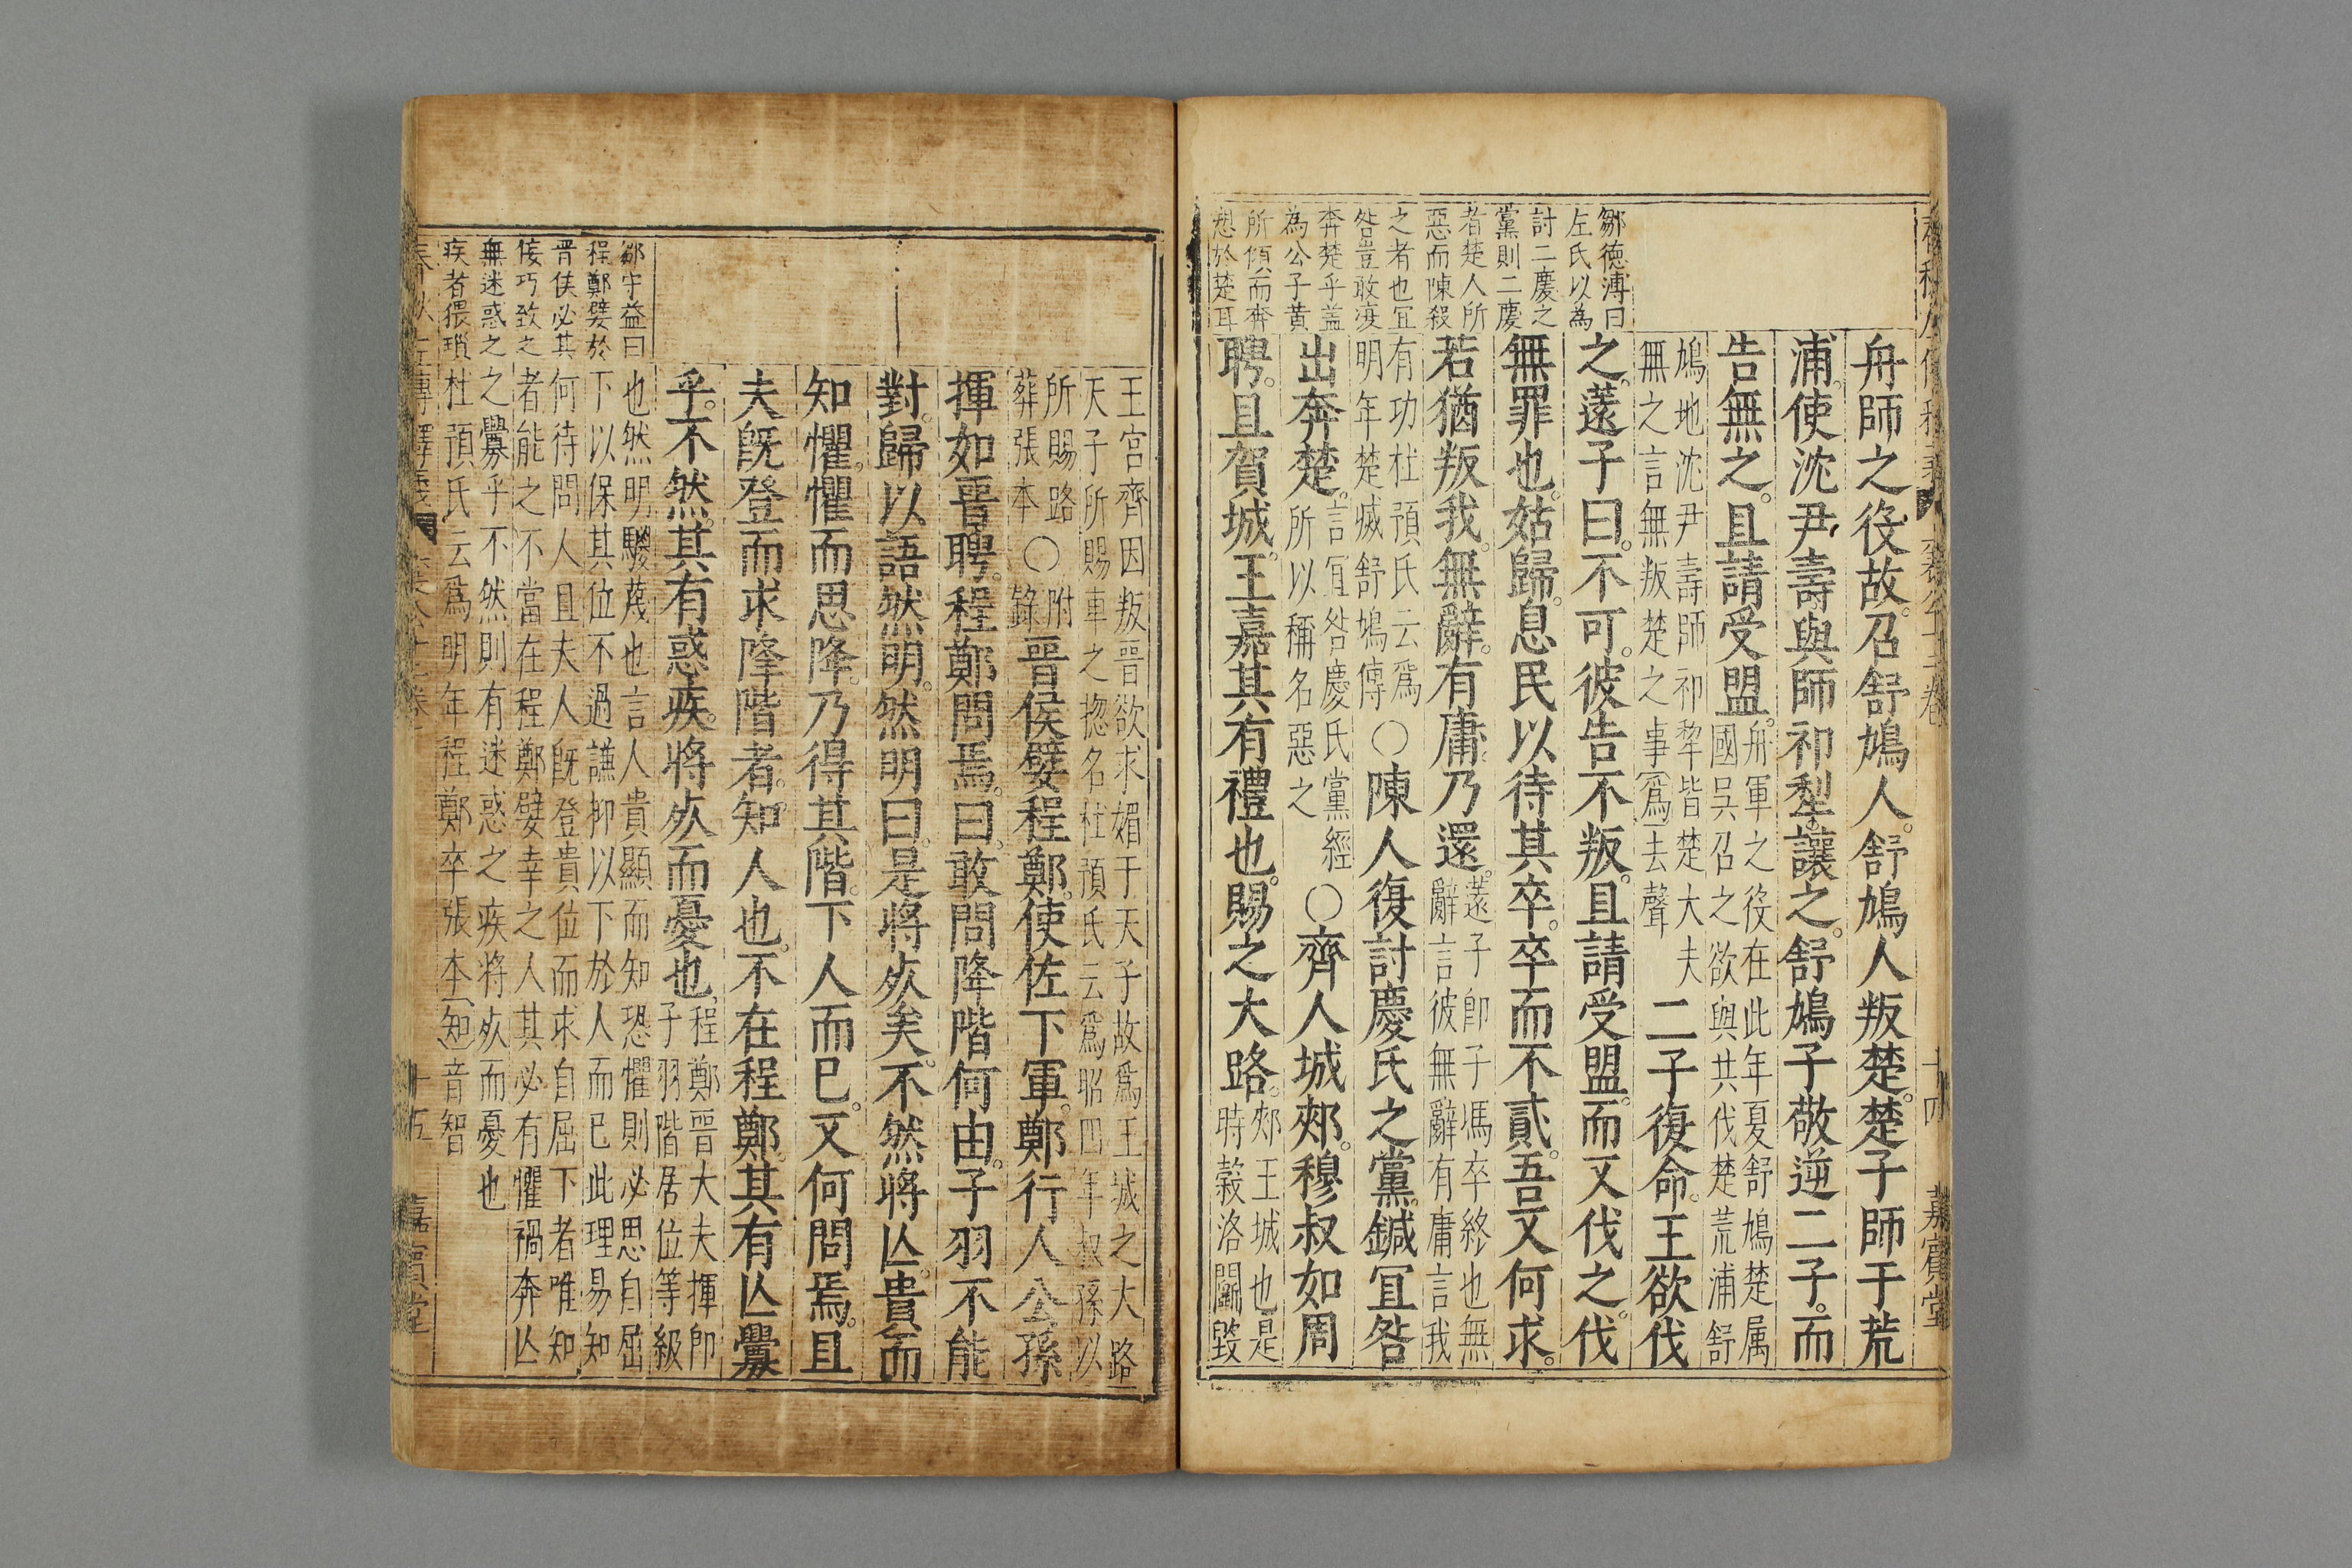 舟師之役故召舒鳩人舒鳩人叛楚楚子師于荒
浦使沈尹壽與師祁犁讓之舒鳩子敬逆二子而
告無之且請受盟
舟軍之役在此年夏舒鳩楚属
國吳召之欲與共伐楚荒浦舒
鳩地沈尹壽師祁犂皆楚大夫
無之言無叛楚之事爲去聲
二子復命王欲伐
之薳子曰不可彼告不叛且請受盟而又伐之伐
無罪也姑歸息民以待其卒卒而不貳吾又何求
若猶叛我無辭有庸乃還
薳子卽子馮卒終也無
辭言彼無辭有庸言我
有功杜預氏云爲
明年楚滅舒鳩傳
〇陳人復討慶氏之黨鍼宜咎
出奔楚
言宜咎慶氏黨經
所以稱名惡之
〇齊人城郟穆叔如周
聘且賀城王嘉其有禮也賜之大路
郟王城也是
時穀洛鬬毀
鄒徳溥曰
左氏以為
討二慶之
黨則二慶
者楚人所
惡而陳殺
之者也宜
咎豈敢復
奔楚乎盖
為公子黄
所傾而奔
愬於楚耳
十四
嘉賓堂
王宮齊因叛晉欲求媚于天子故爲王城之大路
天子所賜車之揔名杜預氏云爲昭四年叔孫以
所賜路
葬張本
〇附
錄
晉侯嬖程鄭使佐下軍鄭行人公孫
揮如晉聘程鄭問焉曰敢問降階何由子羽不能
對歸以語然明然明曰是將死矣不然將亾貴而
知懼懼而思降乃得其階下人而已又何問焉且
夫旣登而求降階者知人也不在程鄭其有亾釁
乎不然其有惑疾將死而憂也
程鄭晉大夫揮卽
子羽階居位等級
也然明鬷蔑也言人貴顯而知恐懼則必思自屈
下以保其位不過謙抑以下於人而已此理易知
何待問人且夫人旣登貴位而求自屈下者唯知
者能之不當在程鄭嬖幸之人其必有懼禍奔亾
之釁乎不然則有迷惑之疾將死而憂也
杜預氏云爲明年程鄭卒張本知音智
鄒守益曰
程鄭嬖於
晋侯必其
佞巧致之
無迷惑之
疾者猥瑣
春秋左傳釋義
襄公十二卷
十五
嘉賓堂